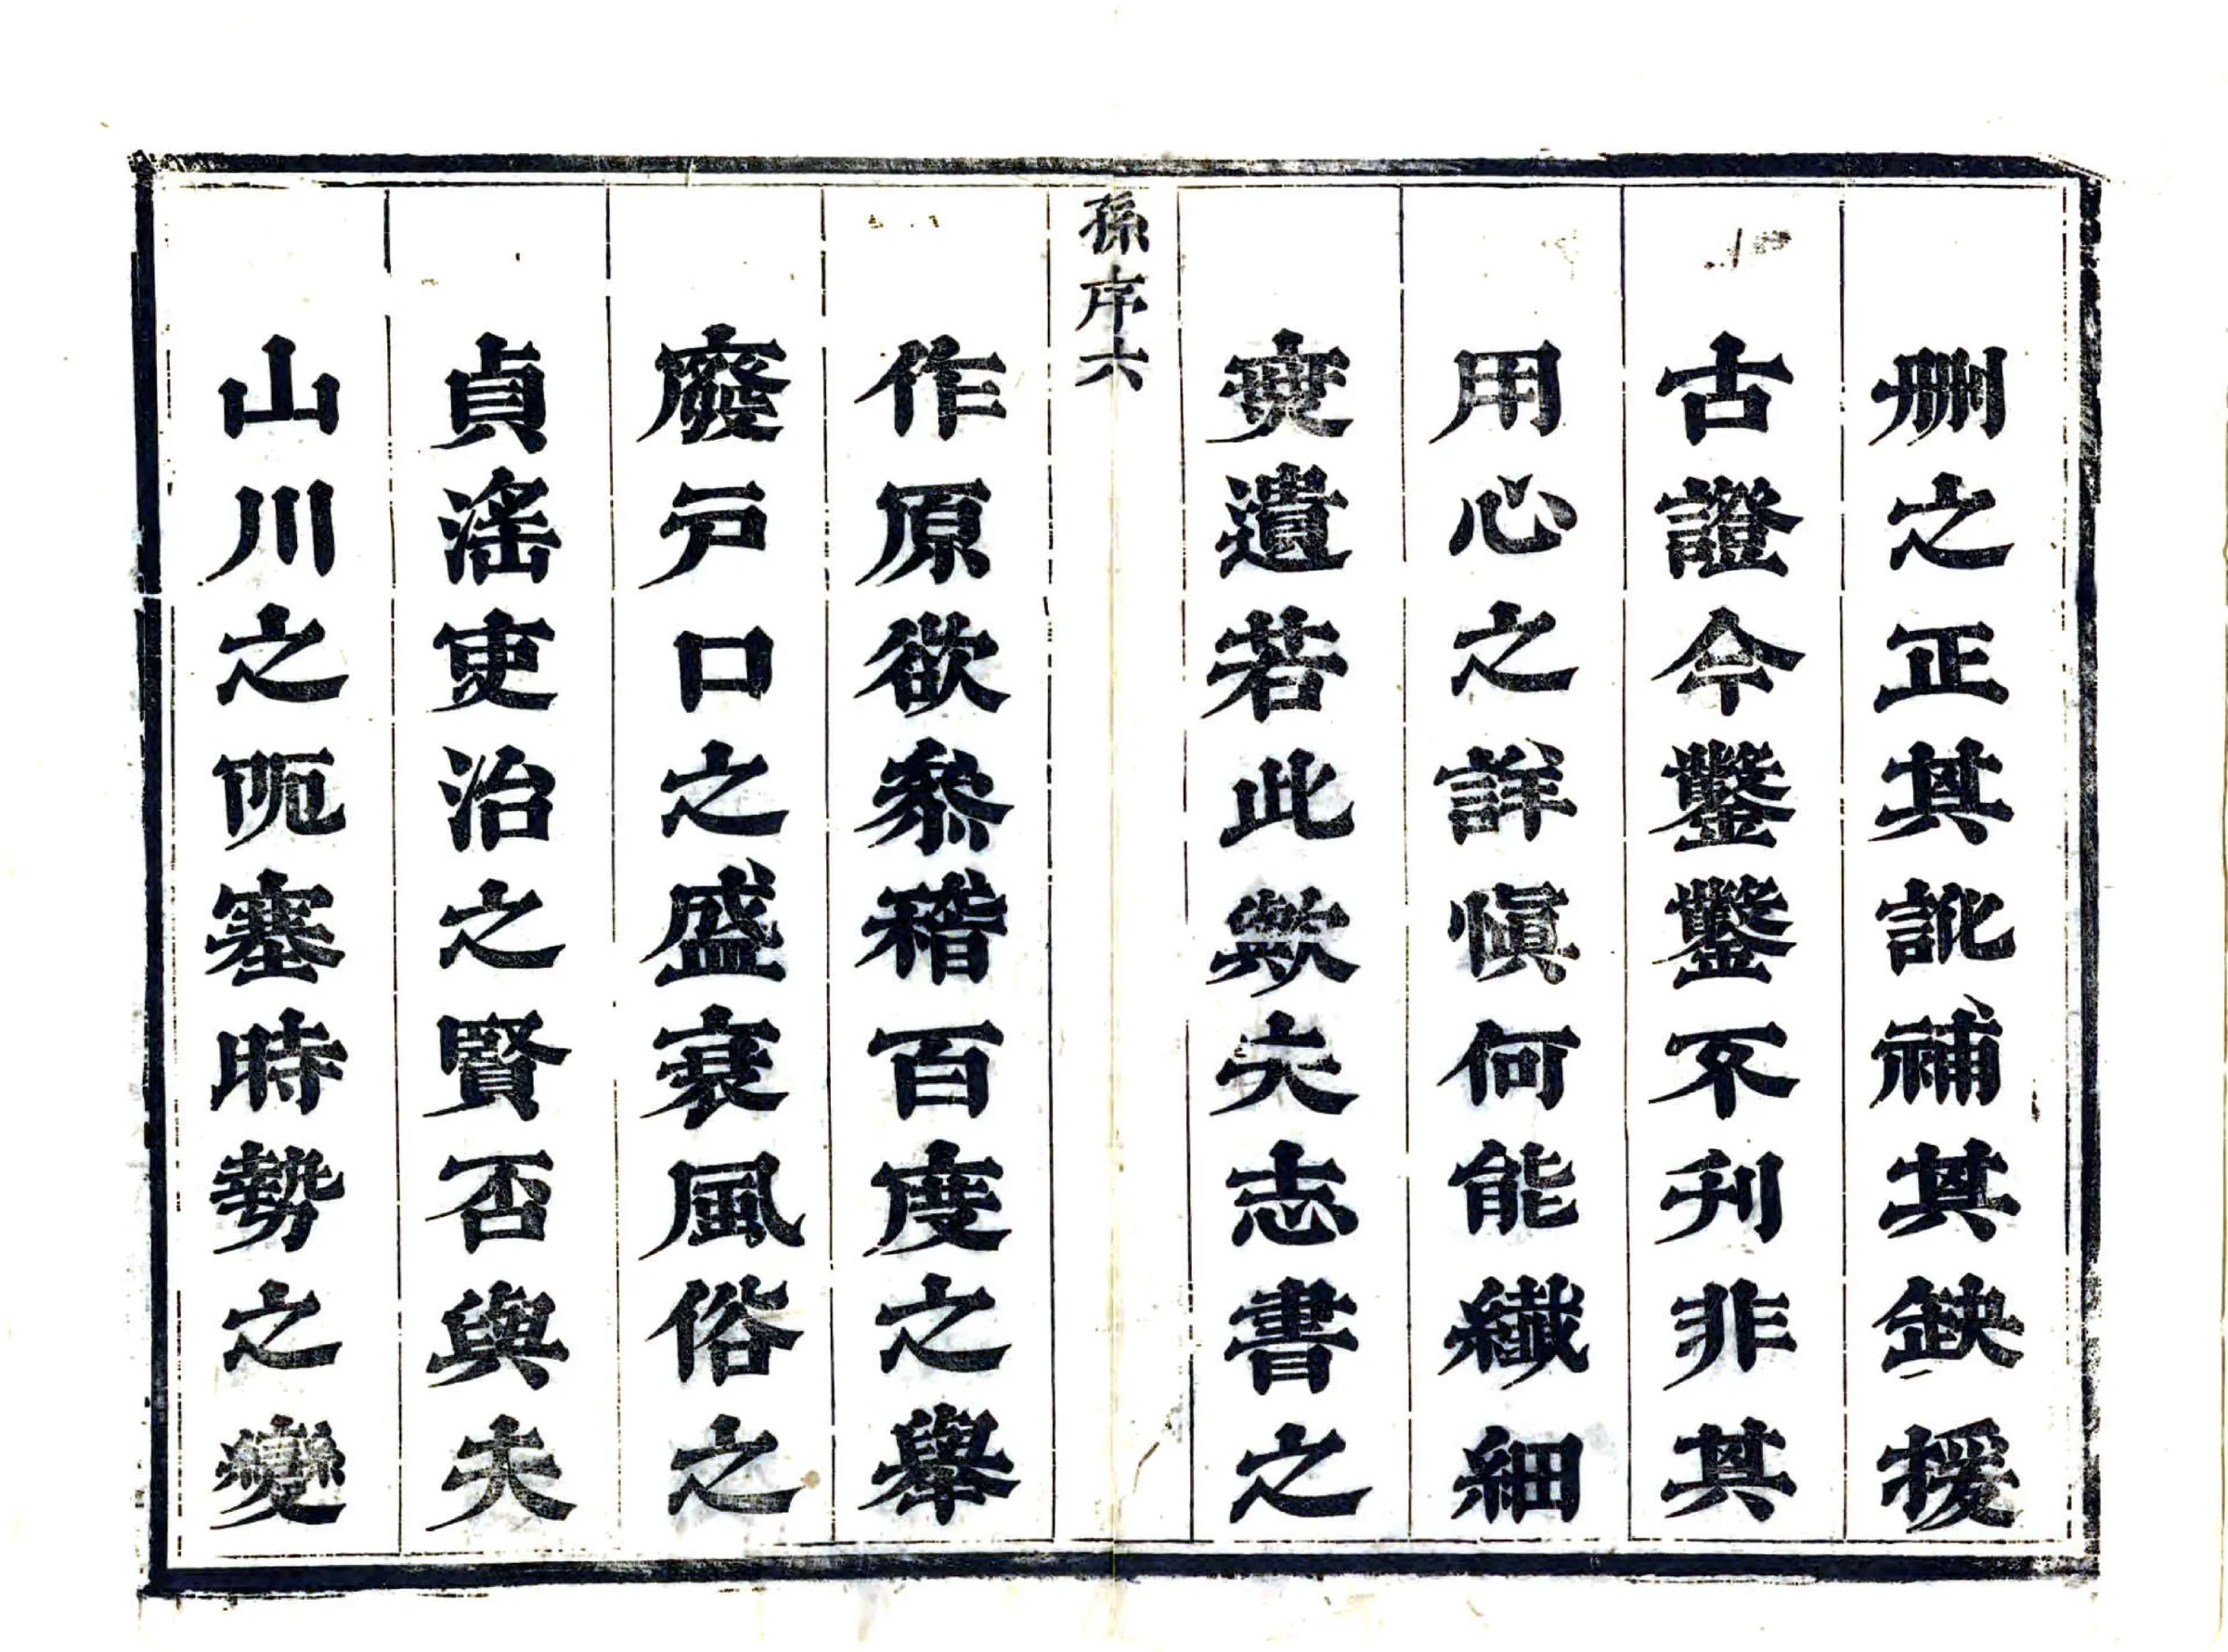 刪之正其訛補其缺援
古證今鑿鑿不刊非其
用心之詳愼何能纖細
無遺若此歟夫志書之
孫序六
作原欲叅稽百度之舉
廢戶口之盛衰風俗之
貞滛吏治之賢否與夫
山川之阨塞時勢之變